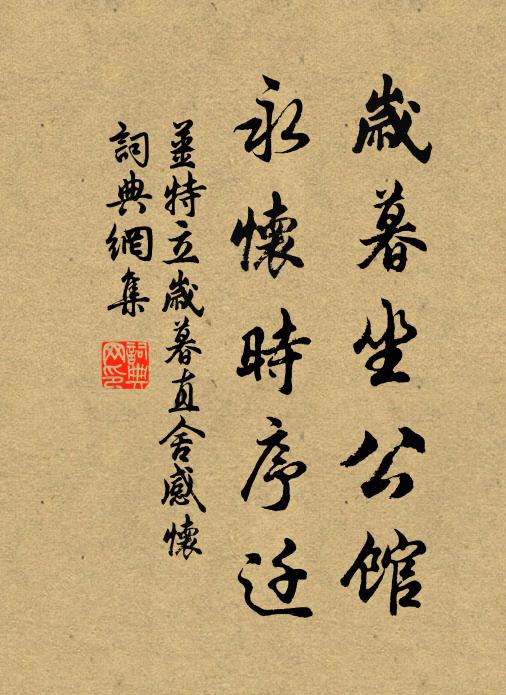 歲暮坐公館
永懷時序迁
姜特立歲暮直舍感懷
詞典網集
詞典網印